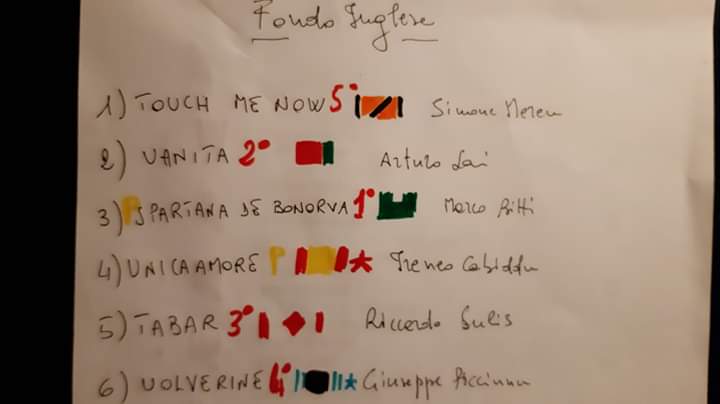 Fondo Inglese
1) TOUCH ME NOW 5° Simone Mereu
2) VANITA 2° Arturo Lai
3) SPARTANA DE BONORVA 1° Marco Bitti
4) UNICAAMORE P Ireneo Cabiddu
5) TABAR 3° Riccardo Sulis
6) UOLVERINE 4° Giuseppe Piccinnu